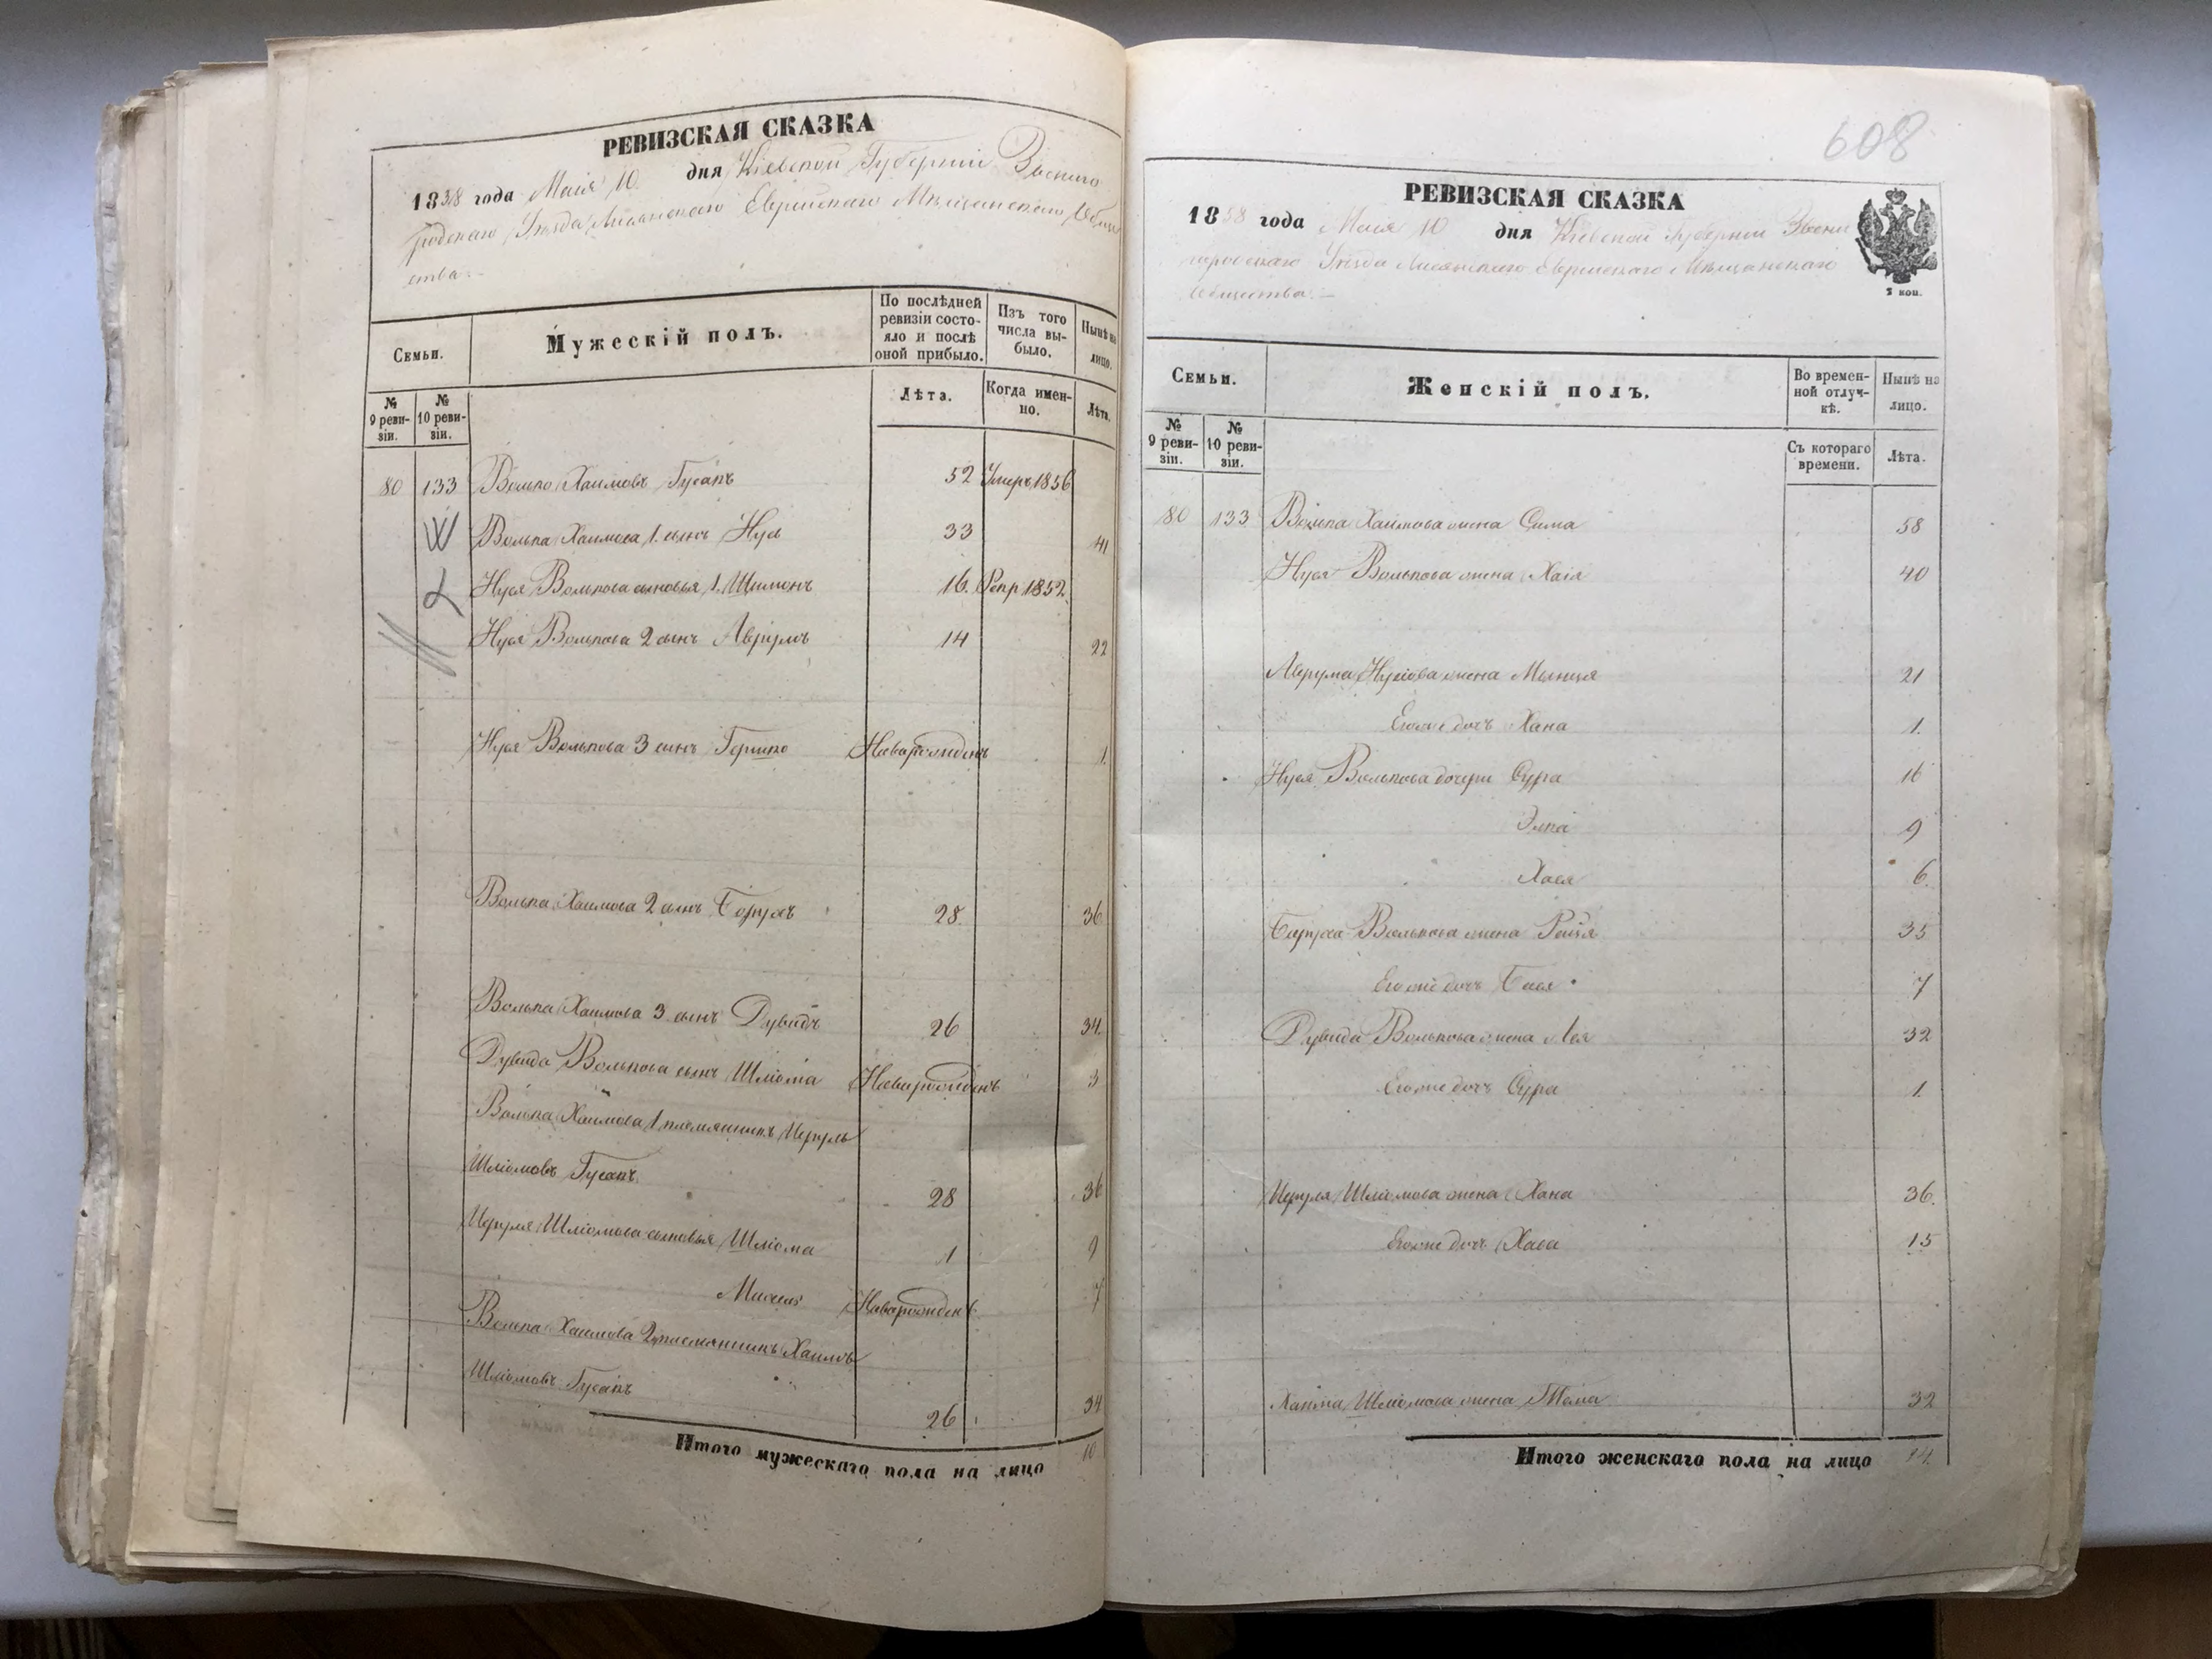 РЕВИЗСКАЯ СКАЗКА
1858 года Маія 10 дня Кіевской Губерніи Звениго
родскаго Уѣзда Лисянскаго Еврейскаго Мѣщанскаго Обще
ства.
Семьи.
Мужескій полъ.
По послѣдней ревизіи состояло и послѣ оной прибыло.
Изъ того числа выбыло.
Нынѣ на лицо.
№ 9 ревизіи.
№ 10 ревизіи.
Лѣта.
Когда именно.
Лѣта.
80 133 Волько Хаимовъ Гусакъ 52 Умеръ 1856
Волька Хаимова 1. сынъ Нусь 33 41
Нуся Волькова сыновья 1. Шимонъ 16. Рекр 1852.
Нуся Волькова 2 сынъ Аврумъ 14 22
Нуся Волькова 3 сынъ Гершко Новорожденъ 1.
Волька Хаимова 2 сынъ Борухъ 28. 36
Волька Хаимова 3 сынъ Дувидъ 26 34.
Дувида Волькова сынъ Шліома Новорожденъ 3
Волька Хаимова 1 племянникъ Иеруль
Шліомовъ Гусакъ. 28 36
Иеруля Шліомова сыновья Шліома 1 9
Новорожденъ 7
Волька Хаимова 2 племянникъ Хаимъ
Шліомовъ Гусакъ 26 34
Итого мужескаго пола на лицо 10
608
РЕВИЗСКАЯ СКАЗКА
1858 года Маія 10 дня Кіевской Губерніи Звени
городскаго Уѣзда Лисянскаго Еврейскаго Мѣщанскаго
Общества.
коп.
Семьи.
Женскій полъ.
Во временной отлучкѣ.
Нынѣ на лицо.
№ 9 ревизіи.
№ 10 ревизіи.
Съ котораго времени.
Лѣта.
80 133 Волька Хаимова жена Сима 58
Нуся Волькова жена Хаія 40
Аврума Нусіова жена 21
Егоже дочь Хана 1.
Нуся Волькова дочери Сура 16
Элка 9
Хася 6.
Боруха Волькова жена Рейзя 35
Егоже дочь Бася 7
Дувида Волькова жена Лея 32
Егоже дочь Сура 1.
Иеруля Шліомова жена Хана 36.
Егоже дочь Хава 15
Хаима Шліомова жена 32
Итого женскаго пола на лицо 14.